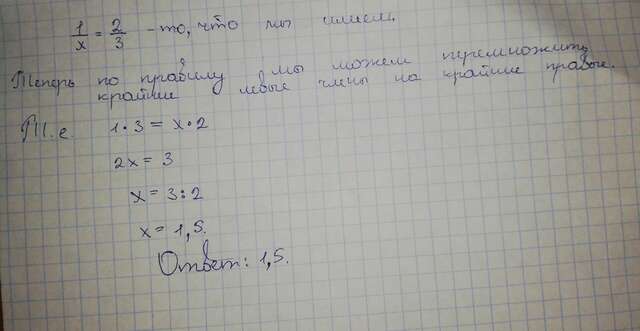 1/x = 2/3 - то, что мы имеем.
Теперь по правилу мы можем перемножить
крайние левые члены на крайние правые.
Т.е. 1·3 = x·2
2x = 3
x = 3:2
x = 1,5.
Ответ: 1,5.